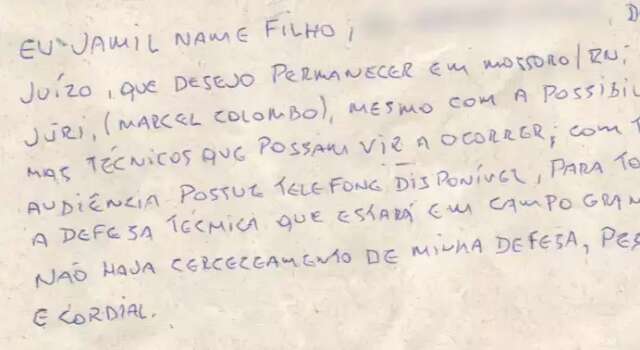 EU JAMIL NAME FILHO,
JUÍZO, QUE DESEJO PERMANECER EM MOSSORO/RN;
JÚRI, (MARCEL COLOMBO), MESMO COM A POSSIBIL
MAS TÉCNICOS QUE POSSAM VIR A OCORRER; COM T
AUDIÊNCIA POSSUE TELEFONE DISPONÍVEL, PARA TO
A DEFESA TÉCNICA QUE ESTARÁ EM CAMPO GRAN
NÃO HAJA CERCECEAMENTO DE MINHA DEFESA, PES
E CORDIAL.